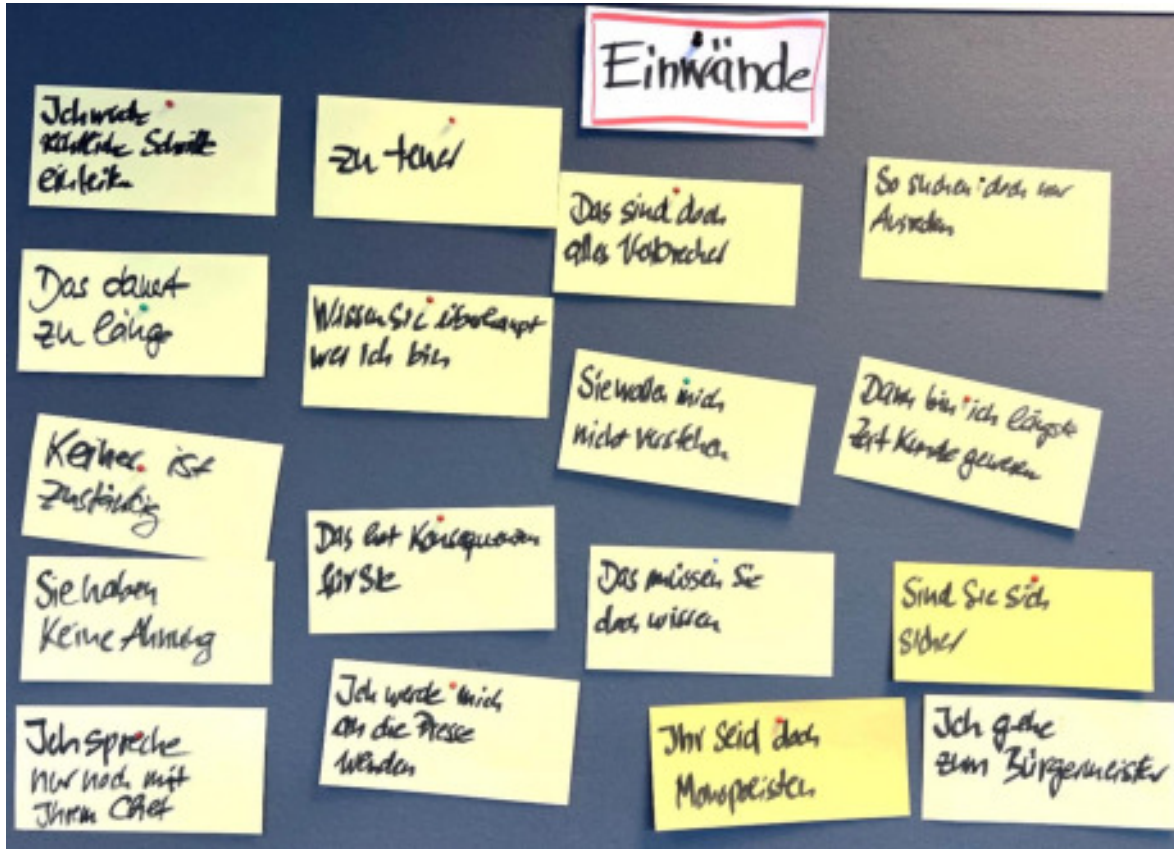 Einwände
Ich werde
rechtliche Schritte
einleiten
Das dauert
zu lange
Keiner ist
zuständig
Sie haben
keine Ahnung
Ich spreche
nur noch mit
Ihrem Chef
zu teuer
Wissen Sie überhaupt
wer ich bin
Das hat Konsequenzen
für Sie
Ich werde mich
an die Presse
wenden
Das sind doch
alles Verbrecher
Sie wollen mich
nicht verstehen
Das müssen Sie
doch wissen
Ihr seid doch
Monopolisten
So suchen doch nur
Ausreden
Dann bin ich längste
Zeit Kunde gewesen
Sind Sie sich
sicher
Ich gehe
zum Bürgermeister